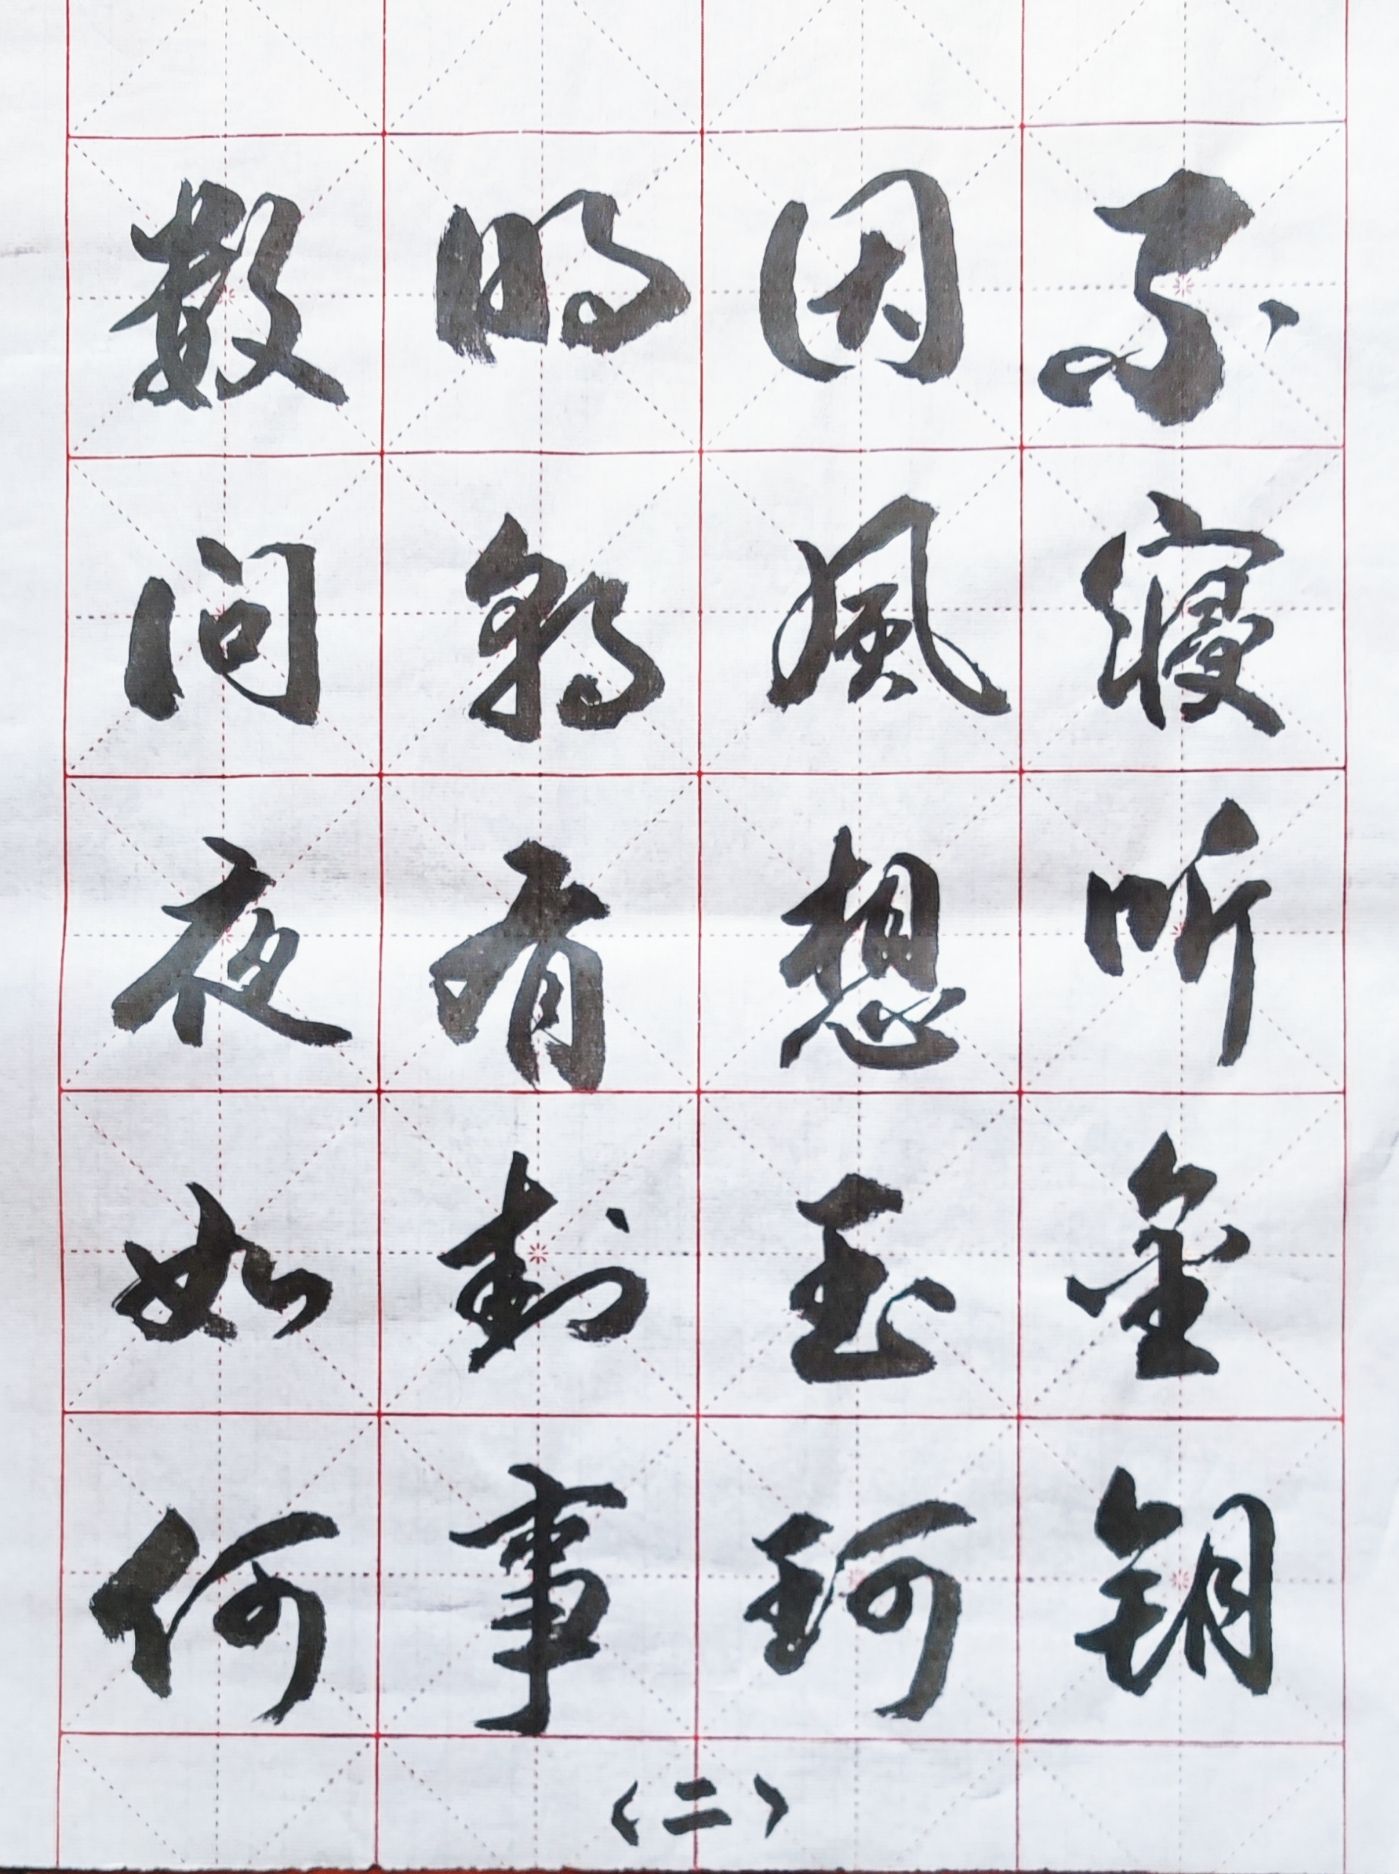 不寝听金钥
因风想玉珂
明朝有封事
数问夜如何
（二）